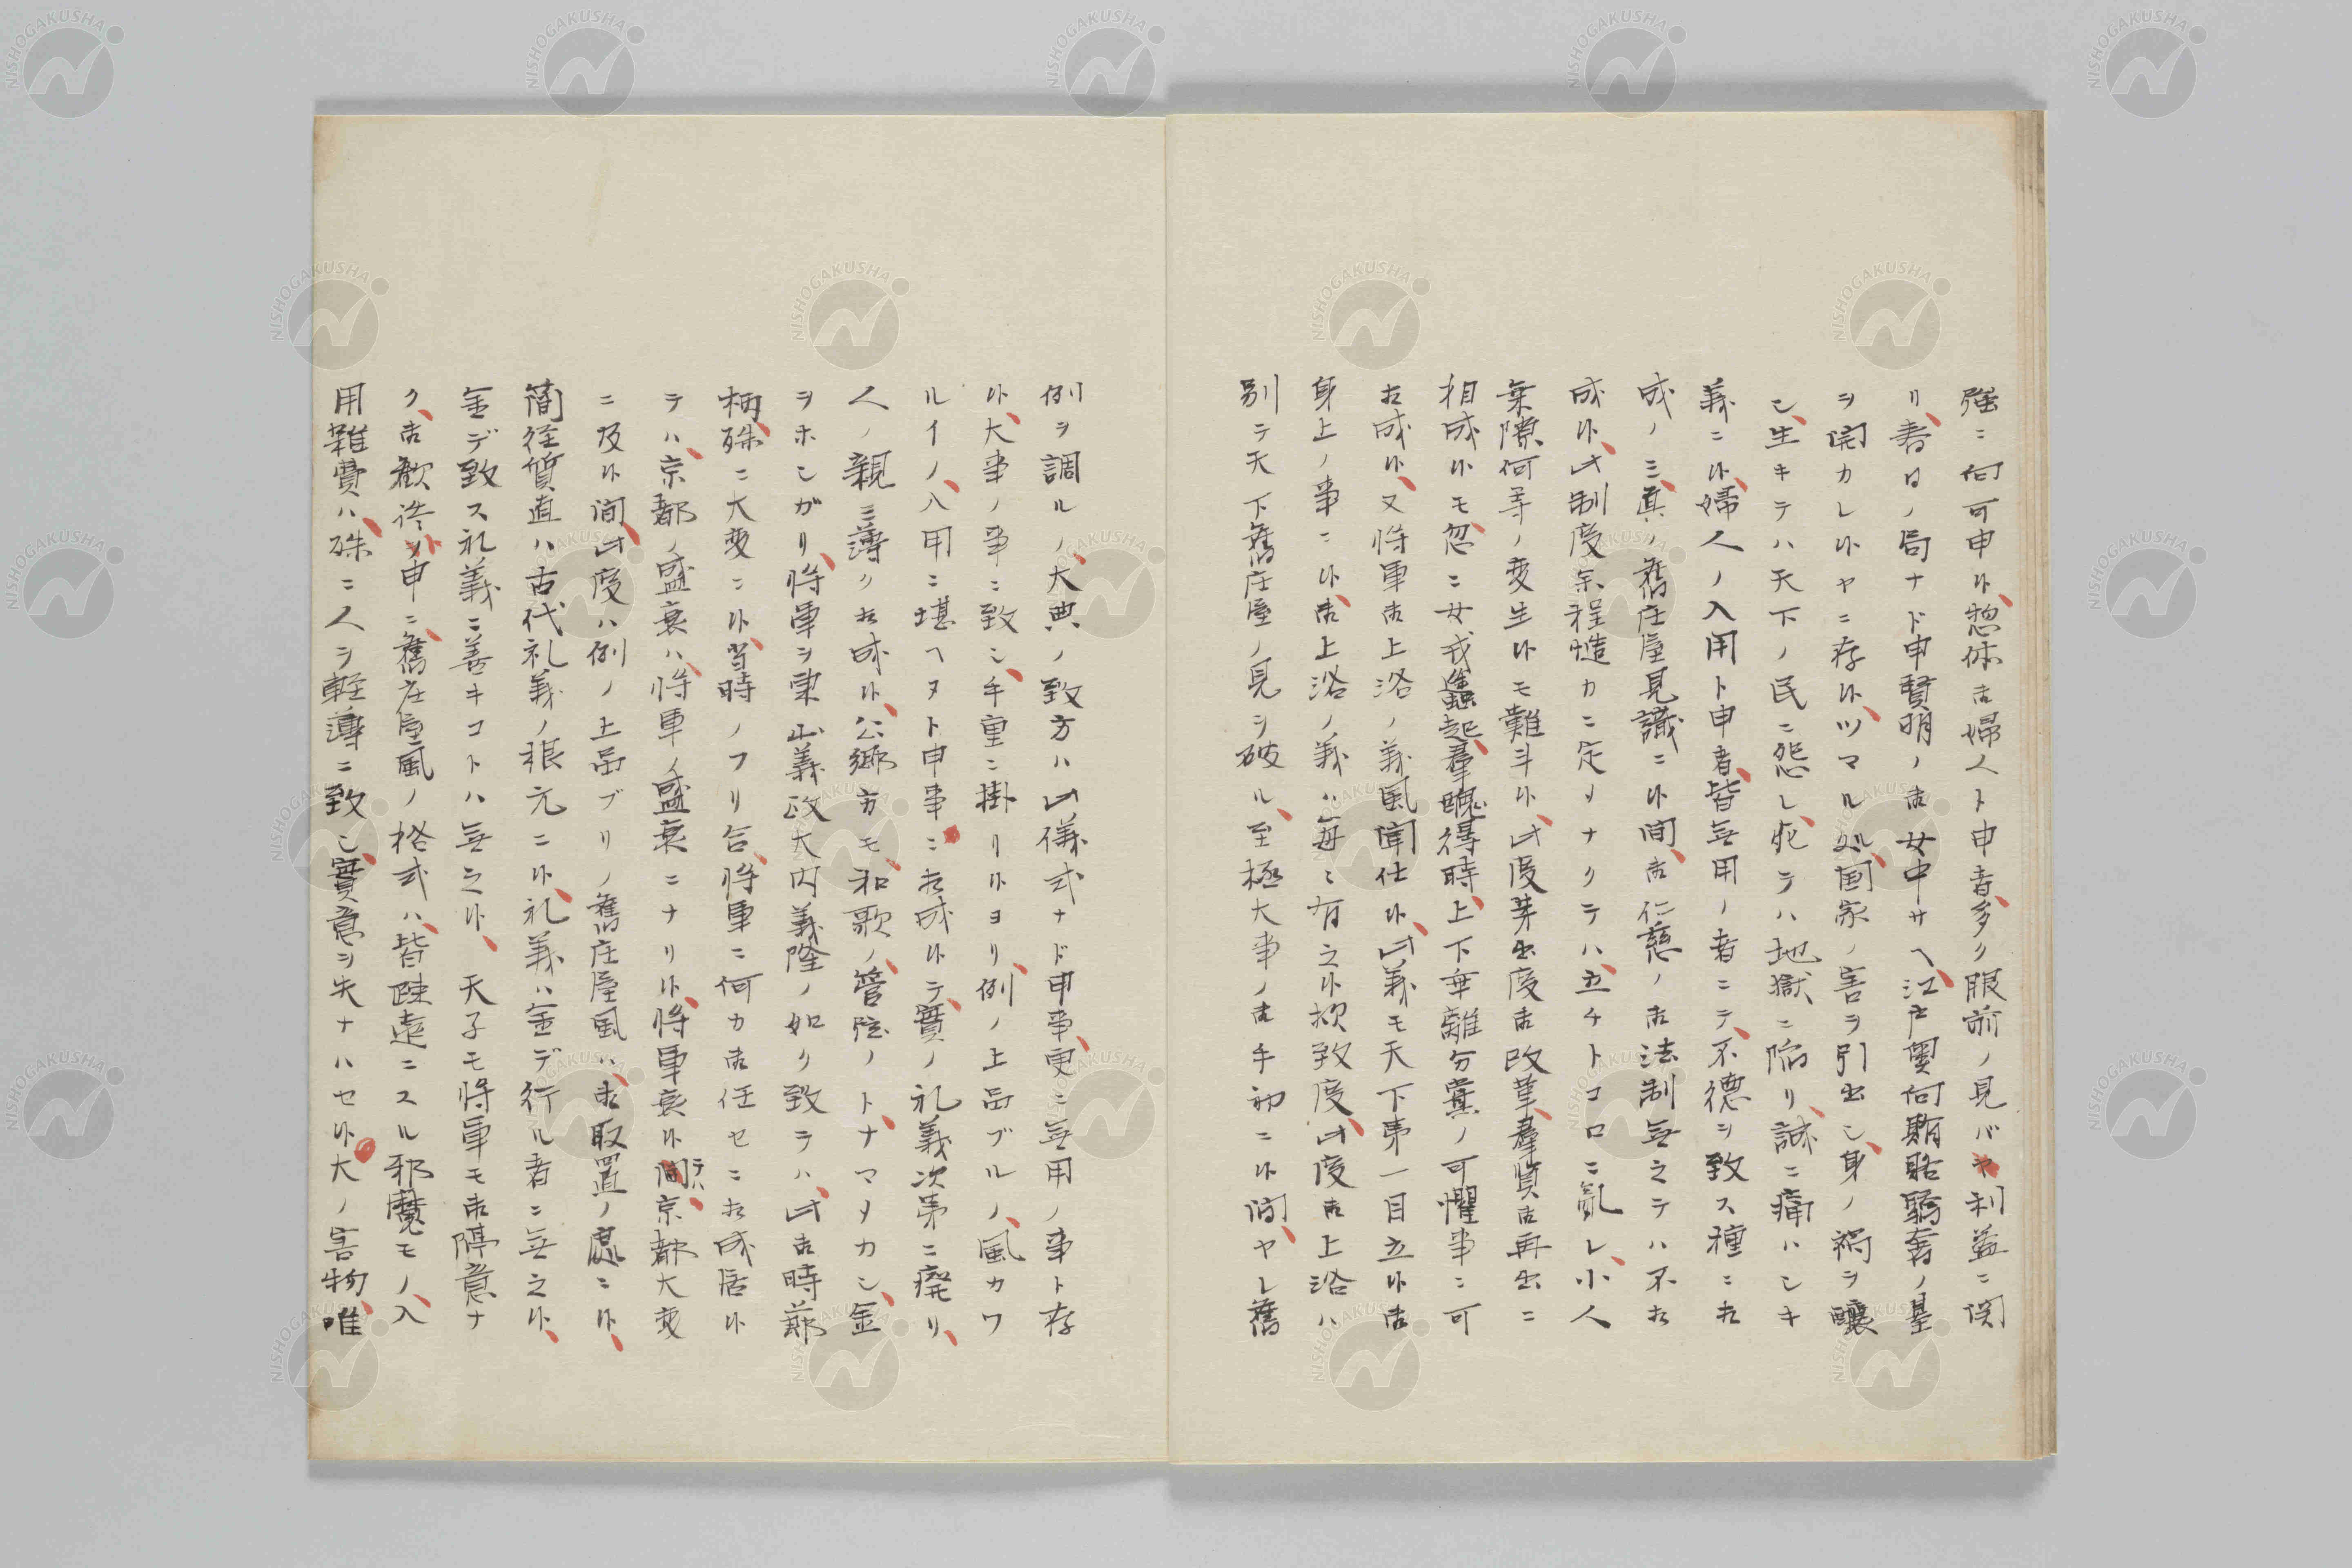 強ニ何可申候、惣体御婦人ト申者、多ク眼前ノ見バヤ利益ニ関
リ、春日ノ局ナド申賢明ノ御女中サヘ、江戸奥向驕奢ノ基
ヲ開カレ候ヤニ存候、ツマル処、国家ノ害ヲ引出シ、身ノ禍ヲ醸
シ、生キテハ天下ノ民ニ怨レ、死テハ地獄ニ陥リ、誠ニ痛ハシキ
義ニ候、婦人ノ入用ト申者、皆無用ノ者ニテ、不徳ヲ致ス種ニ相
成ノミ、真ノ舊庄屋見識ニ候間、御仁慈ノ御法制無之テハ不相
成候、此制度余程慥カニ定メナクテハ、立チトコロニ乱レ、小人
棄隙何等ノ変生候モ難斗候、此度某出度御改革、群賢御再出ニ
相成候モ、忽ニ女戎蠱起、群醜得時、上下乖離分黨ノ可懼事ニ可
相成候、又将軍御上洛ノ義風聞仕候、此義モ天下第一目立候御
身上ノ事ニ候、御上洛ノ義ハ毎々有之候揆致度、此度御上洛ハ
別テ天下舊庄屋ノ見ヲ破ル、至極大事ノ御手初ニ候間、ヤレ舊
例ヲ調ル、大典ノ致方ハ此儀式ナド申事、更ニ無用ノ事ト存
候、大事ノ事ニ致シ、手重ニ掛リ候ヨリ、例ノ上品ブル、風カワ
ルイノ、入用ニ堪ヘヌト申事ニ相成候テ、實ノ礼義次第ニ廃リ、
人ノ親ミ薄ク相成候、公郷方モ、和歌ノ、管絃ノト、ナマメカシ、金
ヲホシガリ、将軍ヲ東山義政大内義隆ノ如ク致テハ、此御時節
柄、殊ニ大変ニ候、当時ノフリ合、将軍ニ何カ御任セニ相成居候
テハ、京都ノ盛衰ハ、将軍ノ盛衰ニナリ候、将軍衰候間テハ、京都大変
ニ及候間、此度ハ例ノ上品ブリノ舊庄屋風ハ、御取置ノ處ニ候、
簡径質直ハ古代礼義ノ根元ニ候、礼義ハ金デ行ル者ニ無之候、
金デ致ス礼義ニ善キコトハ無之候、天子モ将軍モ御隔意ナ
ク、御歓咲メ申ニ、舊庄屋風ノ格式ハ、皆疎遠ニスル邪魔モノ、入
用雑費ハ、殊ニ人ヲ軽薄ニ致シ、實意ヲ失ナハセ候大ノ害物、唯